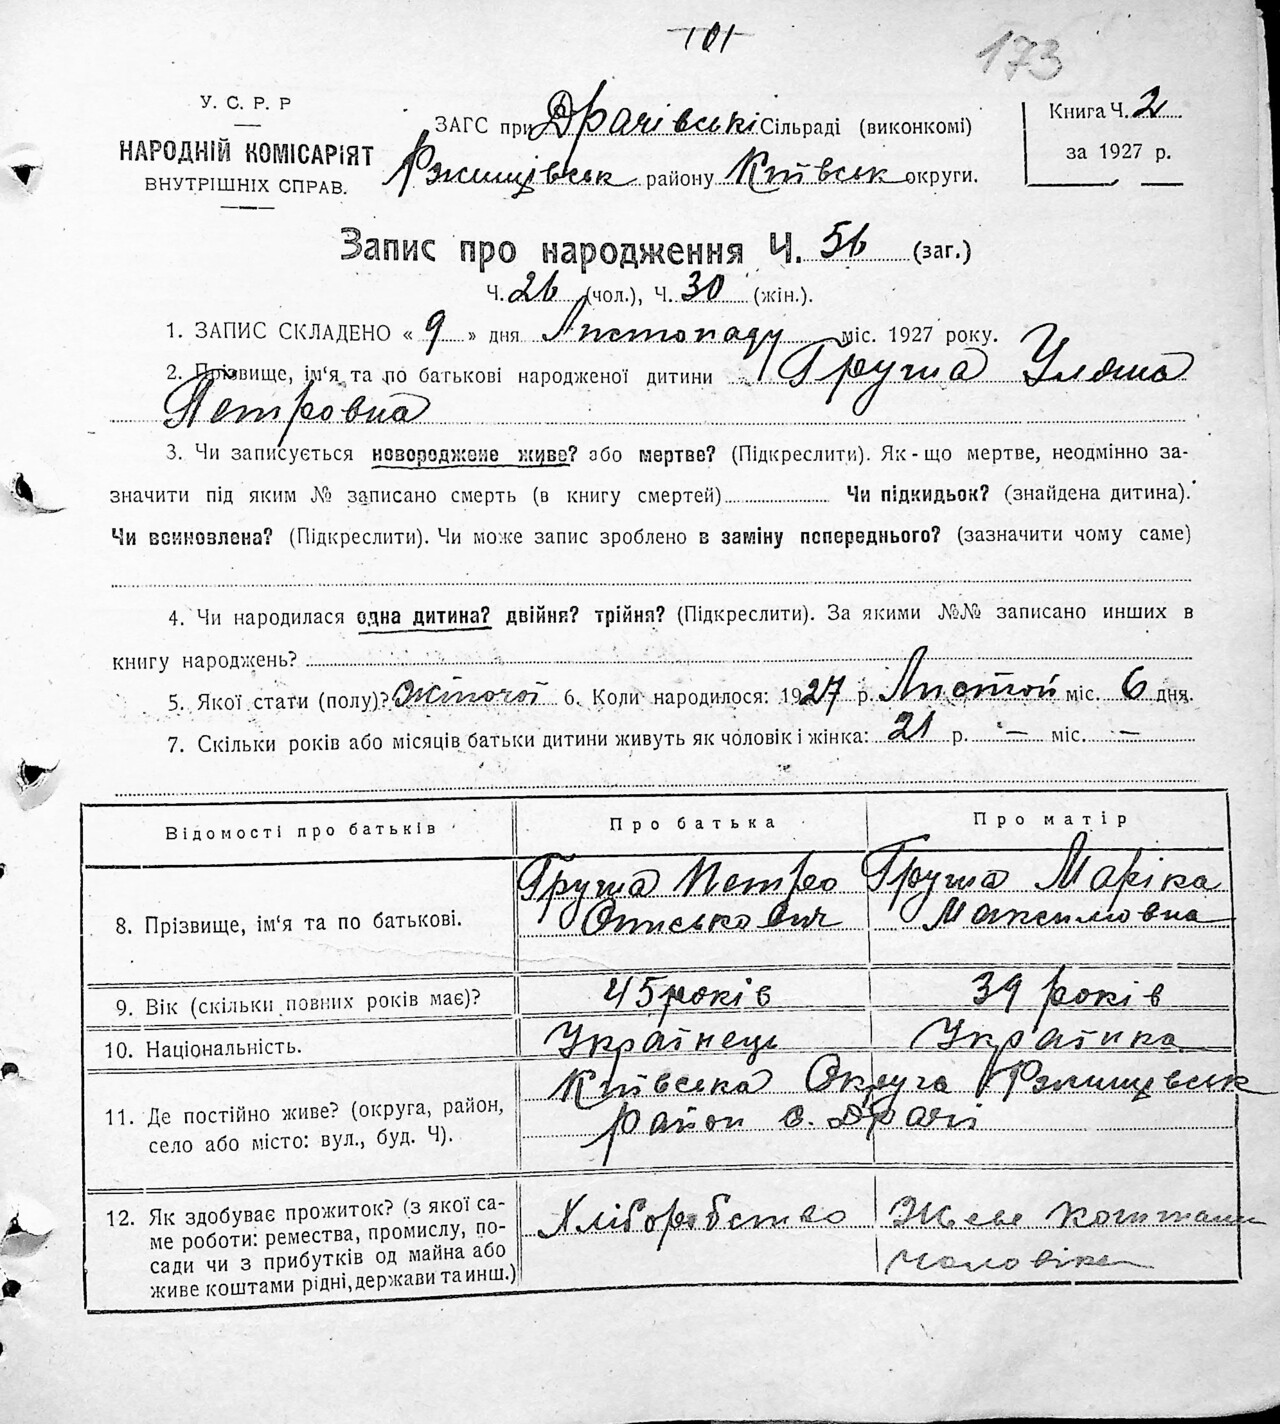 101
173
У. С. Р. Р
НАРОДНІЙ КОМІСАРІЯТ
ВНУТРІШНІХ СПРАВ.
ЗАГС при Драчівські Сільраді (виконкомі)
Ржищівськ району Київськ округи.
Книга Ч. 2
за 1927 р.
Запис про народження Ч. 56 (заг.)
Ч. 26 (чол.), Ч. 30 (жін.).
1. ЗАПИС СКЛАДЕНО « 9 » дня Листопаду міс. 1927 року.
2. Прізвище, ім'я та по батькові народженої дитини Груша Уляна
Петровна
3. Чи записується новороджене живе? або мертве? (Підкреслити). Як-що мертве, неодмінно за-
значити під яким № записано смерть (в книгу смертей) Чи підкидьок? (знайдена дитина).
Чи всиновлена? (Підкреслити). Чи може запис зроблено в заміну попереднього? (зазначити чому саме)
4. Чи народилася одна дитина? двійня? трійня? (Підкреслити). За якими №№ записано инших в
книгу народжень?
5. Якої стати (полу)? Жіночої 6. Коли народилося: 1927 р. Листоп міс. 6 дня.
7. Скільки років або місяців батьки дитини живуть як чоловік і жінка: 21 р. — міс. —
Відомості про батьків Про батька Про матір
8. Прізвище, ім'я та по батькові. Груша Петро Груша Маріка
Ониськович Максимовна
9. Вік (скільки повних років має)? 45 років 39 років
10. Національність. Українець Украінка
11. Де постійно живе? (округа, район, Київська Округа Ржищівськ
село або місто: вул., буд. Ч). район с. Драчі
12. Як здобуває прожиток? (з якої са-
ме роботи: ремества, промислу, по- Хліборобство Живе коштами
сади чи з прибутків од майна або
живе коштами рідні, держави та инш.) чоловіка